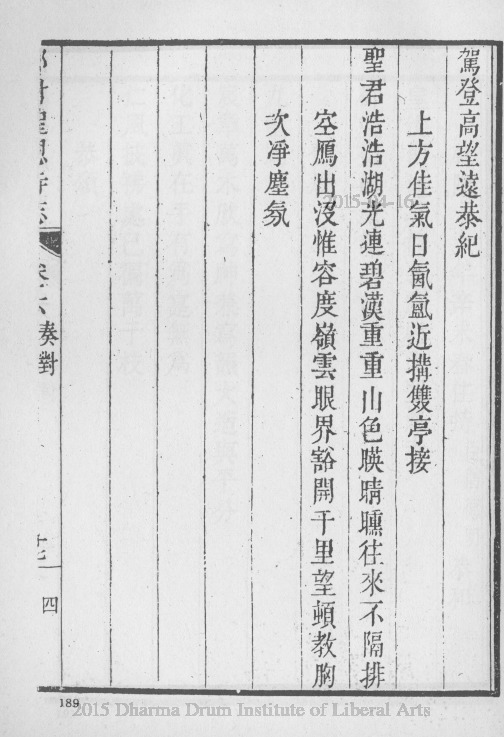 駕登高望遠恭紀
上方佳氣日氤氳近搆雙亭接
聖君浩浩湖光連碧漢重重山色暎晴曛往來不隔排
空鴈出沒惟容度嶺雲眼界豁開千里望頓教胸
次淨塵氛
聖恩寺志 卷六 奏對
四
189
2015-04-16
2015 Dharma Drum Institute of Liberal Arts